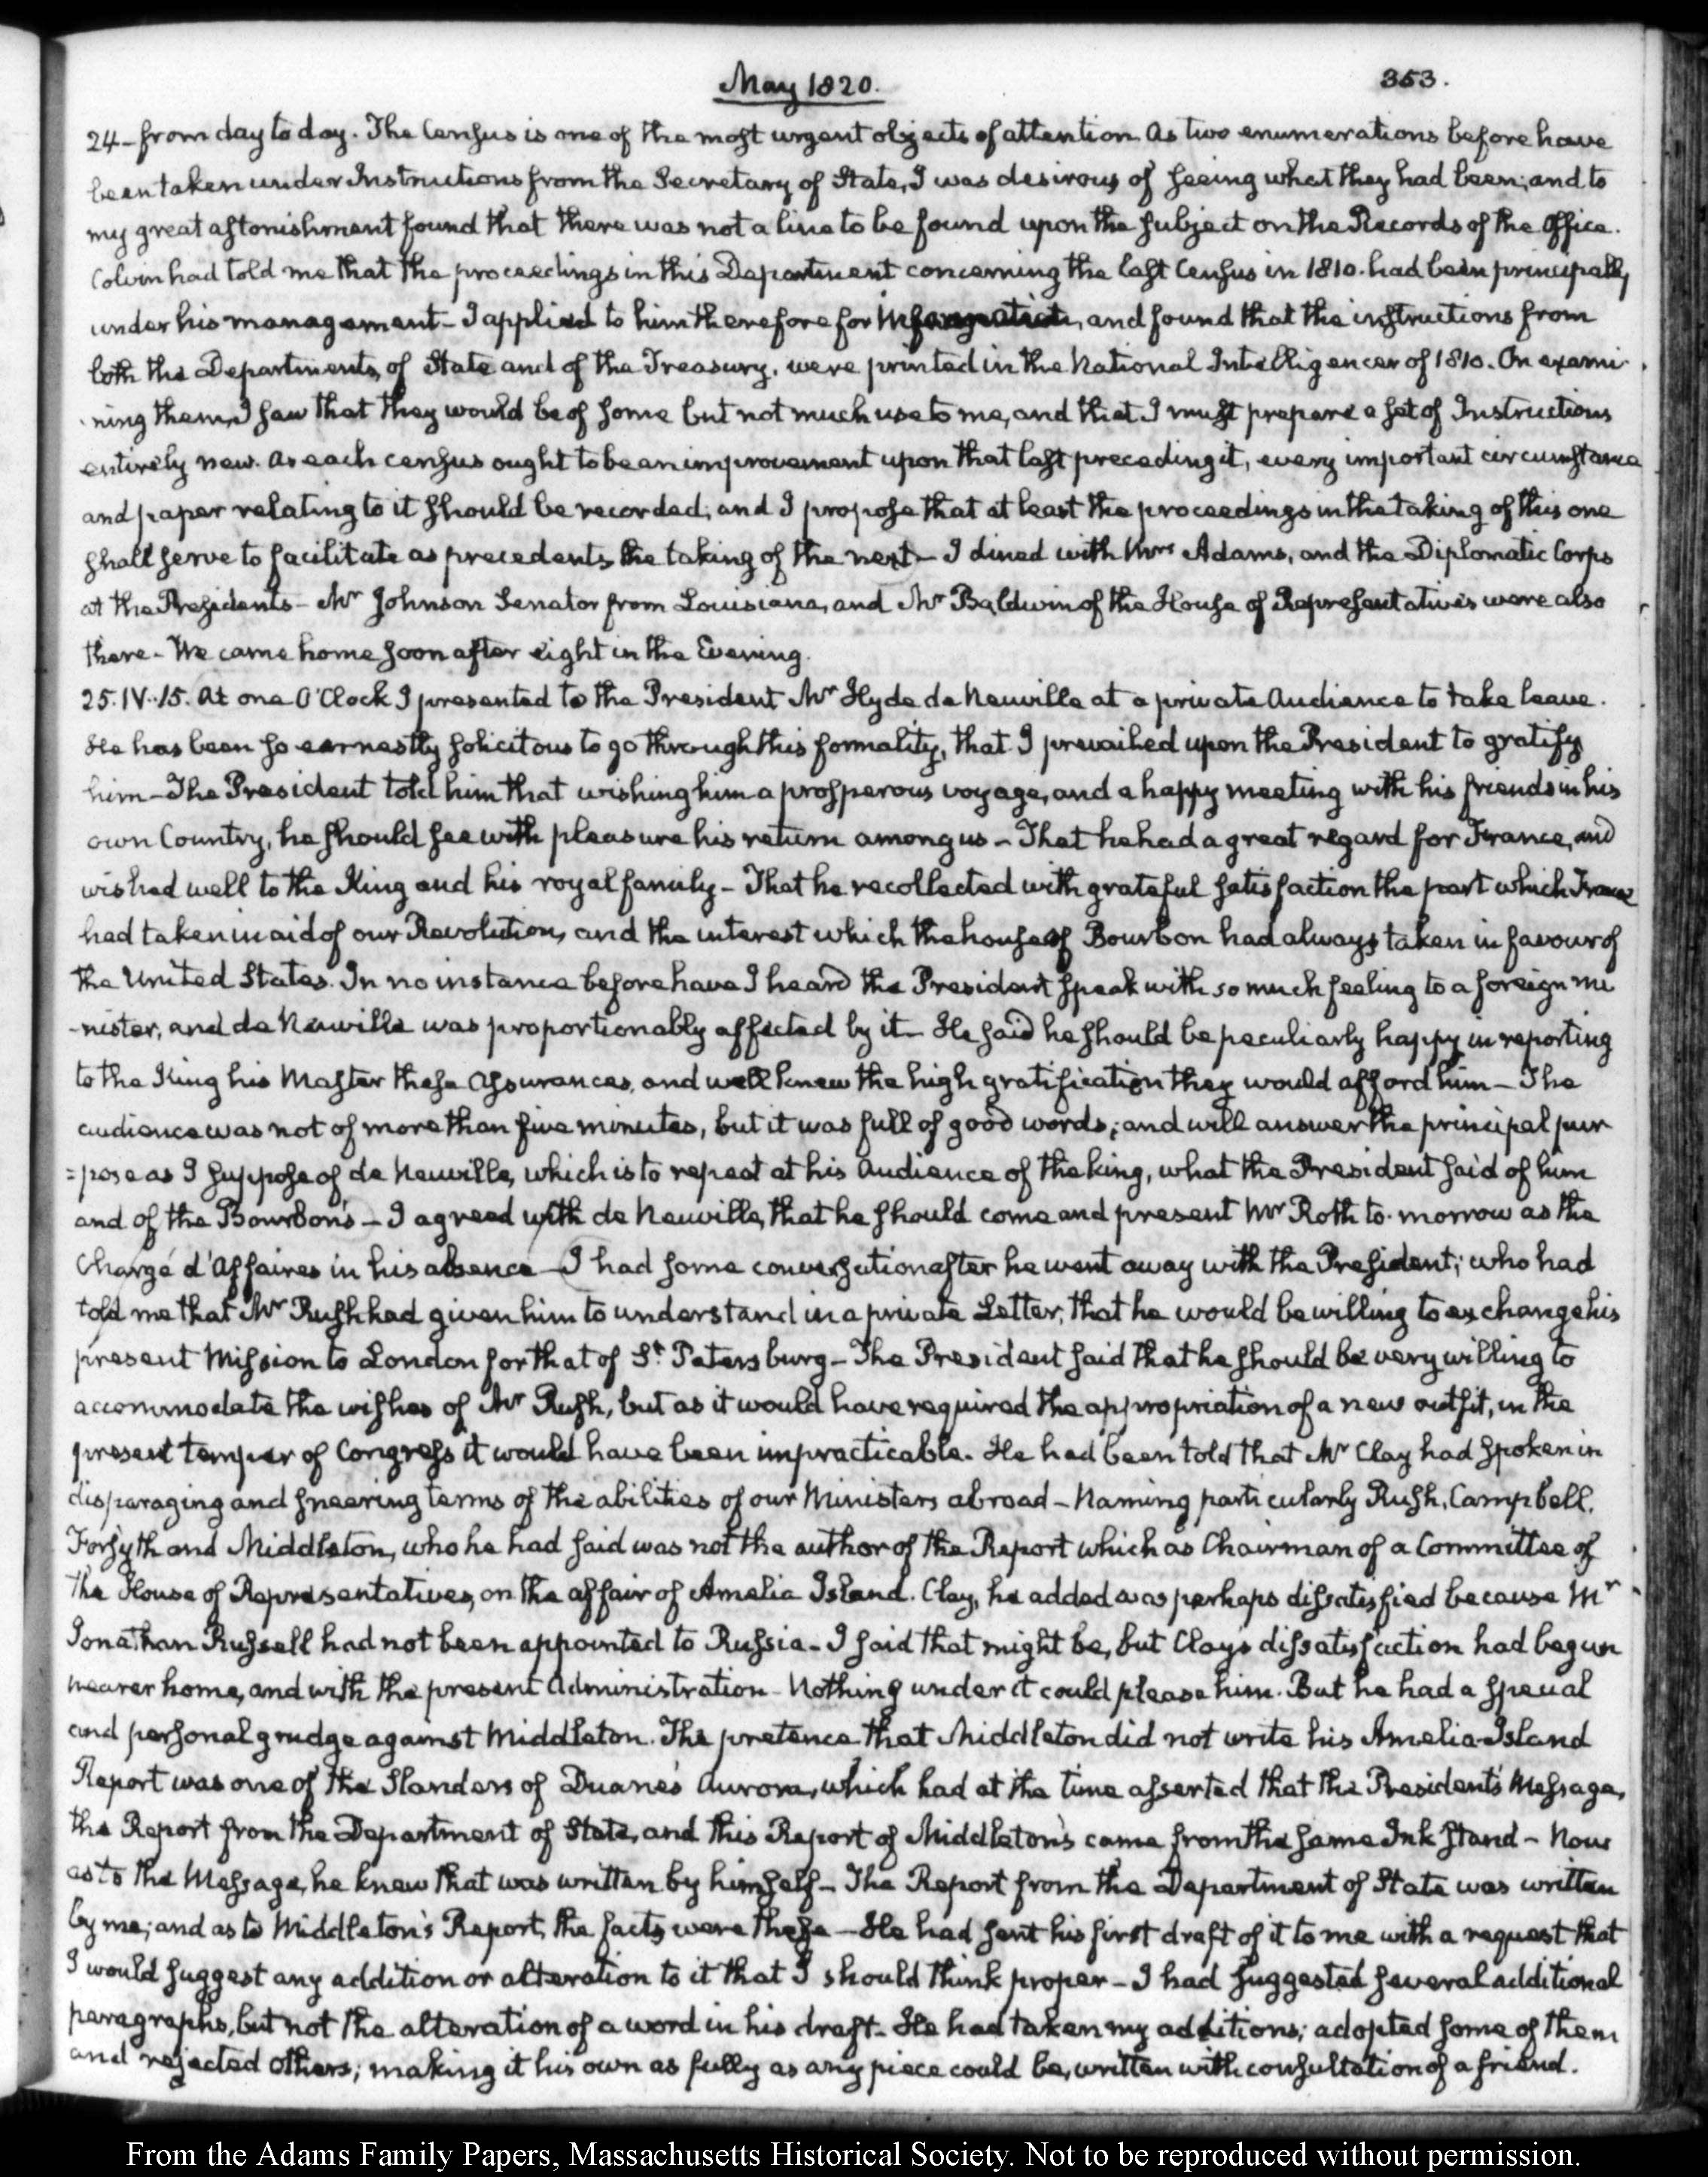 May 1820.
353.
24 – from day to day. The Census is one of the most urgent objects of attention As two enumerations before have
been taken under Instructions from the Secretary of State, I was desirous of seeing what they had been; and to
my great astonishment found that there was not a line to be found upon the subject on the Records of the Office.
Colvin had told me that the proceedings in this Department concerning the last Census in 1810. had been principally
under his management – I applied to him therefore for information, and found that the instructions from
both the Departments, of State and of the Treasury, were printed in the National Intelligencer of 1810. On exami
-ning them, I saw that they would be of some but not much use to me, and that I must prepare a set of Instructions
entirely new. As each census ought to be an improvement upon that last preceding it, every important circumstance
and paper relating to it should be recorded; and I propose that at least the proceedings in the taking of this one
shall serve to facilitate as precedents, the taking of the next – I dined with Mrs Adams, and the Diplomatic Corps
at the Presidents – Mr Johnson Senator from Louisiana, and Mr Baldwin of the House of Representatives were also
there – We came home soon after eight in the Evening.
25. IV..15. At one O'Clock I presented to the President Mr Hyde de Neuville at a private Audience to take leave.
He has been so earnestly solicitous to go through this formality, that I prevailed upon the President to gratify
him – The President told him that wishing him a prosperous voyage, and a happy meeting with his friends in his
own Country, he should see with pleasure his return among us – That he had a great regard for France, and
wished well to the King and his royal family – That he recollected with grateful satisfaction the part which France
had taken in aid of our Revolution, and the interest which the house of Bourbon had always taken in favour of
the United States. In no instance before have I heard the President speak with so much feeling to a foreign mi
-nister, and de Neuville was proportionably affected by it – He said he should be peculiarly happy in reporting
to the King his Master these assurances, and well knew the high gratification they would afford him – The
audience was not of more than five minutes, but it was full of good words; and will answer the principal pur
=pose as I suppose of de Neuville, which is to repeat at his Audience of the king, what the President said of him
and of the Bourbon's – I agreed with de Neuville, that he should come and present Mr Roth to-morrow as the
Chargé d'Affaires in his absence – I had some conversation after he went away with the President; who had
told me that Mr Rush had given him to understand in a private Letter, that he would be willing to exchange his
present Mission to London for that of St Petersburg – The President said that he should be very willing to
accommodate the wishes of Mr Rush, but as it would have required the appropriation of a new outfit, in the
present temper of Congress it would have been impracticable. He had been told that Mr Clay had spoken in
disparaging and sneering terms of the abilities of our Ministers abroad – Naming particularly Rush, Campbell,
Forsyth and Middleton, who he had said was not the author of the Report which as Chairman of a Committee of
the House of Representatives, on the affair of Amelia Island. Clay, he added was perhaps dissatisfied because Mr
Jonathan Russell had not been appointed to Russia – I said that might be, but Clay's dissatisfaction had begun
nearer home, and with the present Administration – Nothing under it could please him. But he had a special
and personal grudge against Middleton. The pretence that Middleton did not write his Amelia-Island
Report was one of the Slanders of Duane's Aurora, which had at the time asserted that the President's Message,
the Report from the Department of State, and this Report of Middleton's came from the same Ink stand – Now
as to the Message, he knew that was written by himself – The Report from the Department of State was written
by me; and as to Middleton's Report, the facts were these – He had sent his first draft of it to me with a request that
I would suggest any addition or alteration to it that I should think proper – I had suggested several additional
paragraphs, but not the alteration of a word in his draft – He had taken my additions; adopted some of them
and rejected others; making it his own as fully as any piece could be, written with consultation of a friend.
From the Adams Family Papers, Massachusetts Historical Society. Not to be reproduced without permission.